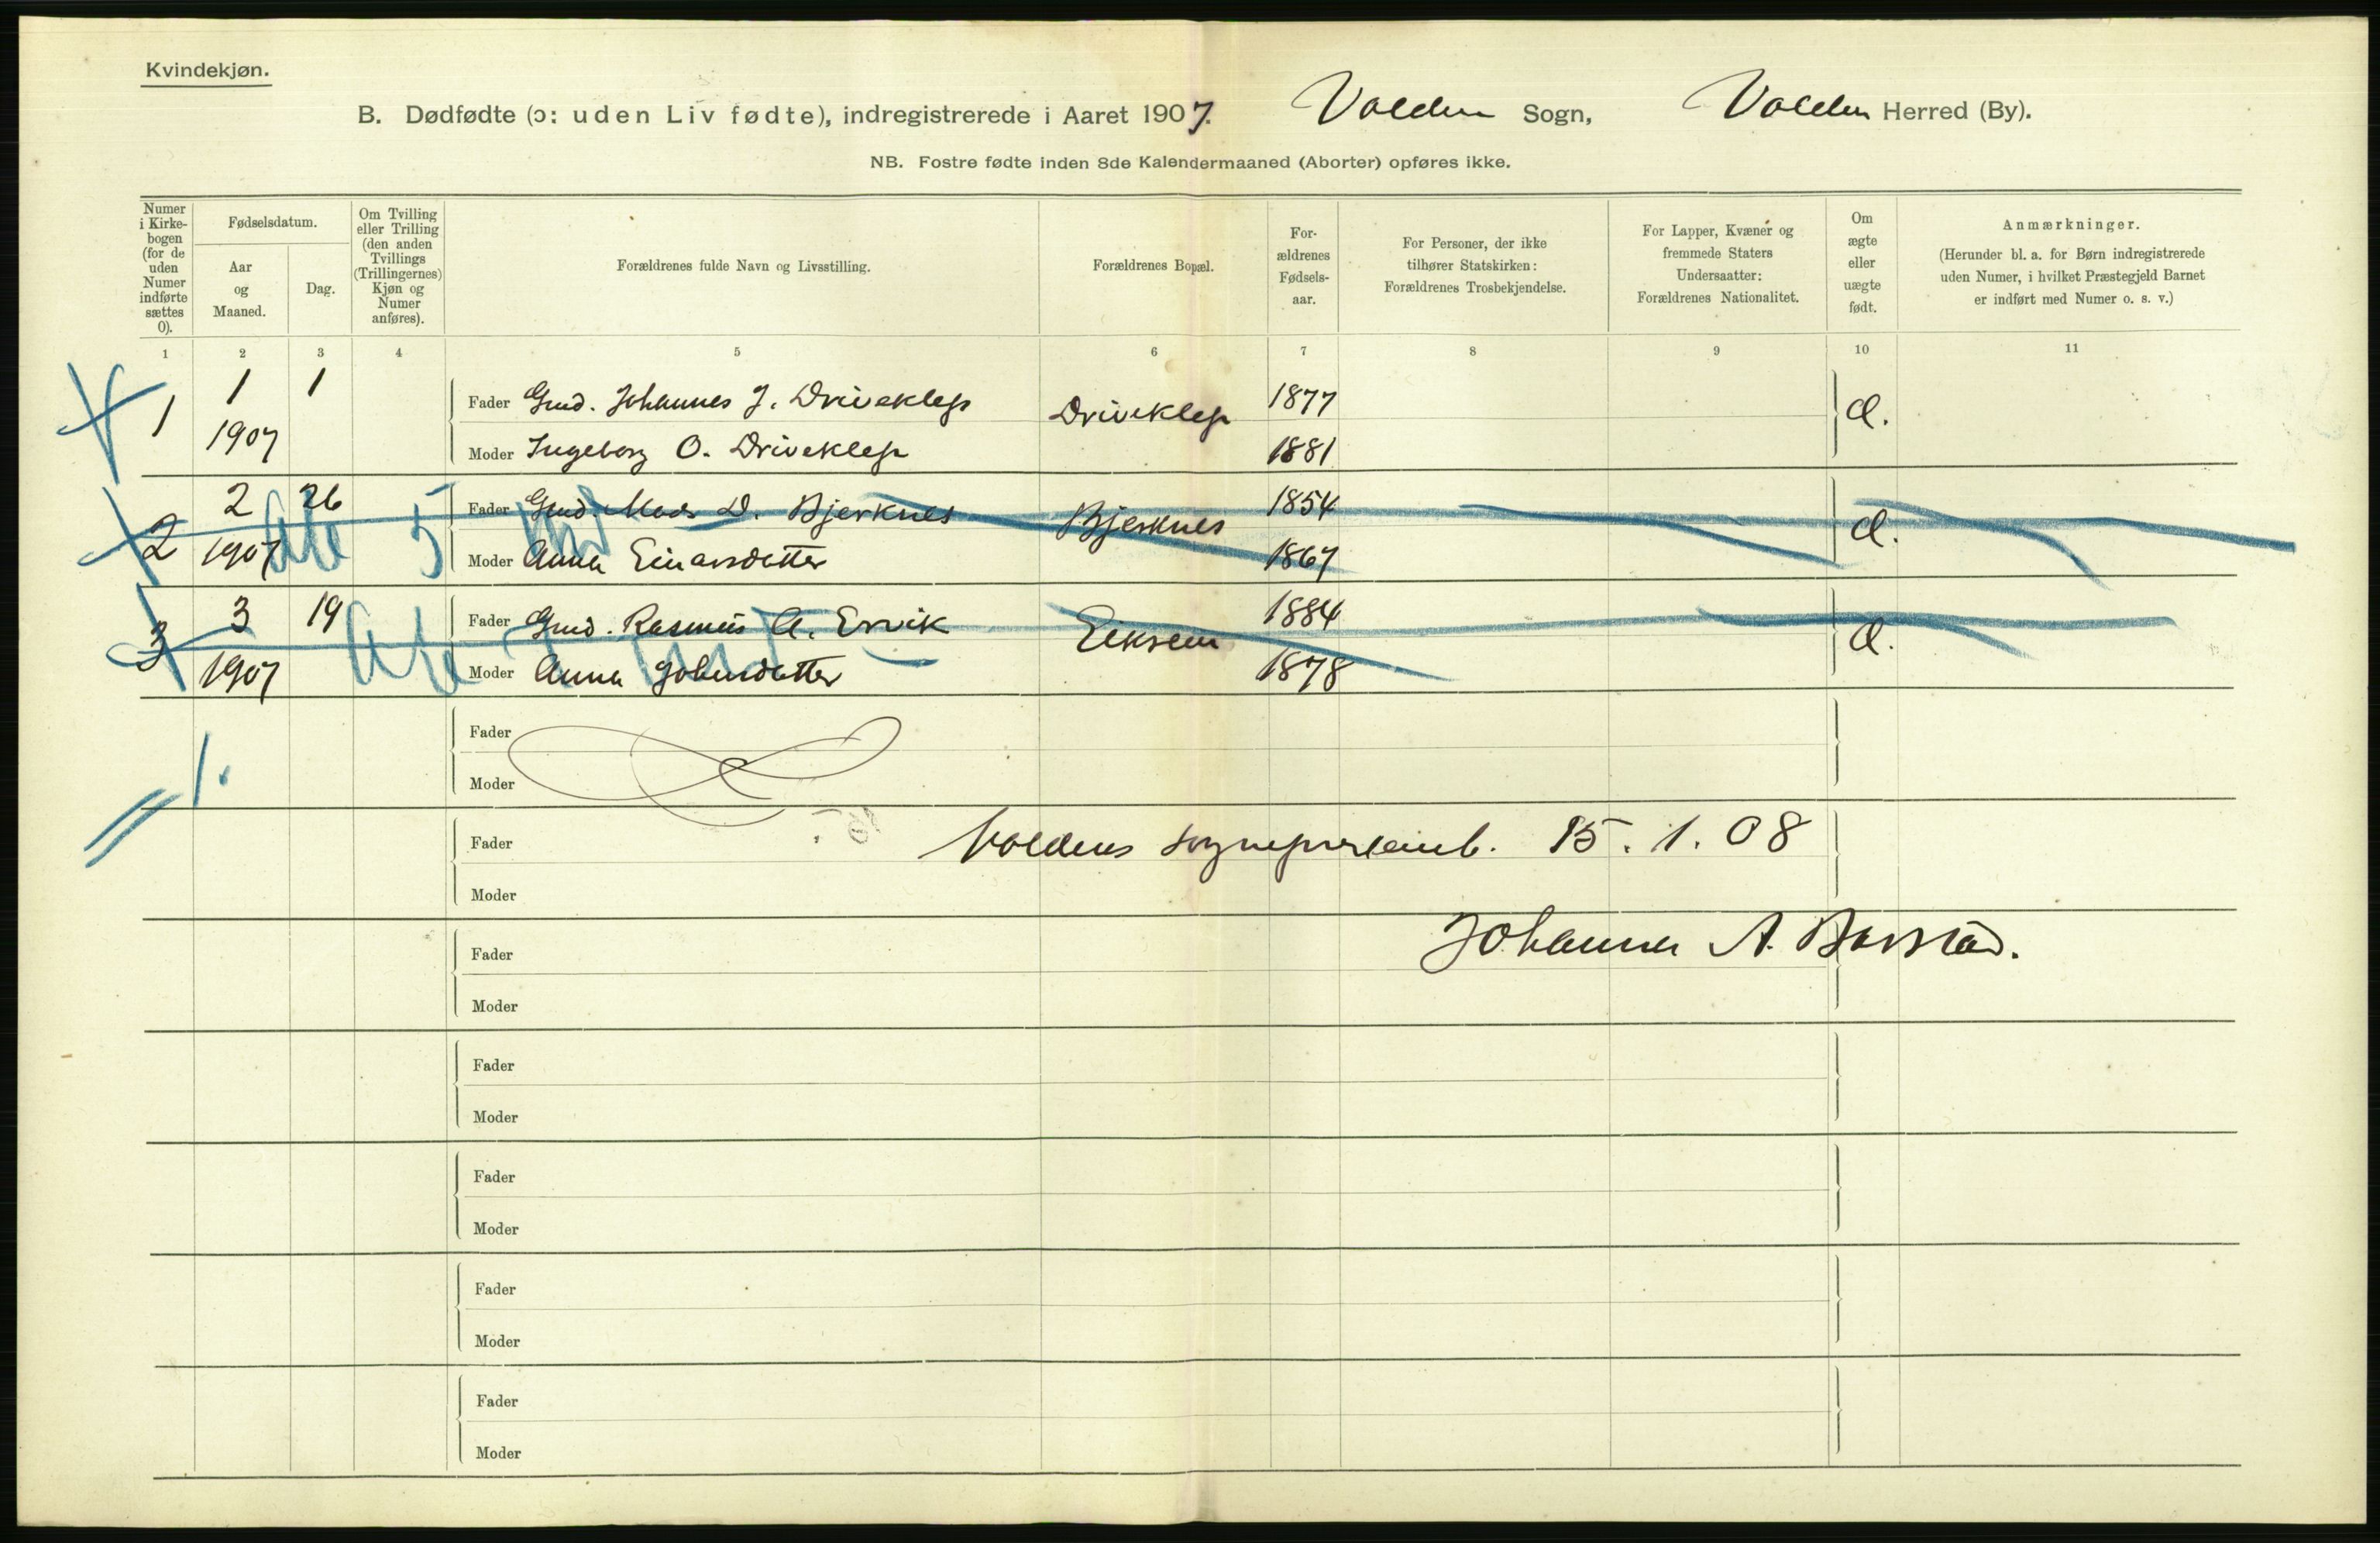 Kvindekjøn.
B. Dødfødte (ɔ: uden Liv fødte), indregistrerede i Aaret 1907. Volden Sogn, Volden Herred (By).
NB. Fostre fødte inden 8de Kalendermaaned (Aborter) opføres ikke.
Numer i Kirkebogen (for de uden Numer indførte sættes 0).
Fødselsdatum.
Aar og Maaned.
Dag.
Om Tvilling eller Trilling (den anden Tvillings (Trillingernes) Kjøn og Numer anføres).
Forældrenes fulde Navn og Livsstilling.
Forældrenes Bopæl.
Forældrenes Fødselsaar.
For Personer, der ikke tilhører Statskirken: Forældrenes Trosbekjendelse.
For Lapper, Kvæner og fremmede Staters Undersaatter: Forældrenes Nationalitet.
Om ægte eller uægte født.
Anmærkninger.
(Herunder bl. a. for Børn indregistrerede uden Numer, i hvilket Præstegjeld Barnet er indført med Numer o. s. v.)
1 2 3 4 5 6 7 8 9 10 11
1 1 1907 1 Fader Gmd. Johannes J. Driveklep Driveklep 1877 Æ.
Moder Ingeborg O. Driveklep 1881
2 2 1907 26 Fader Gmd. Mads D. Bjerknes Bjerknes 1854 Æ.
Moder Anna Einarsdatter 1867
3 3 1907 19 Fader Gmd. Rasmus A. Ervik Eiksem 1884 Æ.
Moder Anna Johnsdatter 1878
Fader
Moder
1.
Fader
Voldens sogneprestemb. 15. 1. 08
Moder
Johannes A. Barstad.
Fader
Moder
Fader
Moder
Fader
Moder
Fader
Moder
Fader
Moder